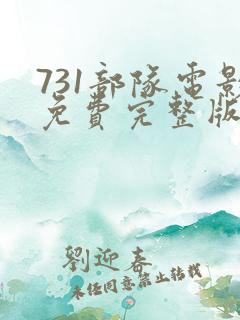 731部隊电影
免費完整版
劉迎春
未經同意禁止轉載